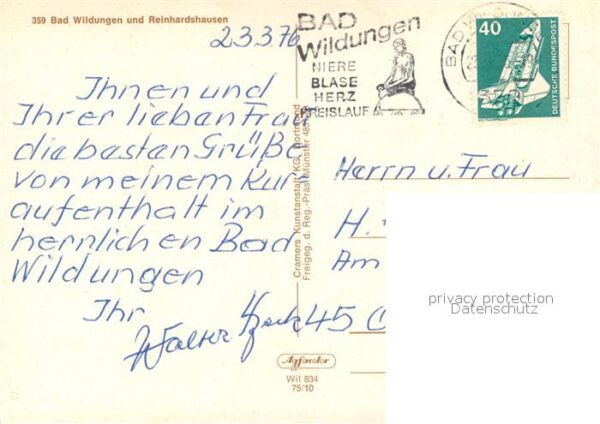 359 Bad Wildungen und Reinhardshausen
23.3.76
BAD
Wildungen
NIERE
BLASE
HERZ
KREISLAUF
BAD
40
DEUTSCHE BUNDESPOST
Ihnen und
Ihrer lieben Frau
die besten Grüße
von meinem Kur
aufenthalt im
herrlichen Bad
Wildungen
Ihr
Walter
Cramers Kunstanstalt KG, Dortmund
Freigeg. d. Reg.-Präs. Münster
Herrn u. Frau
H.
Am
45
privacy protection
Datenschutz
Agfacolor
Wil 834
75/10